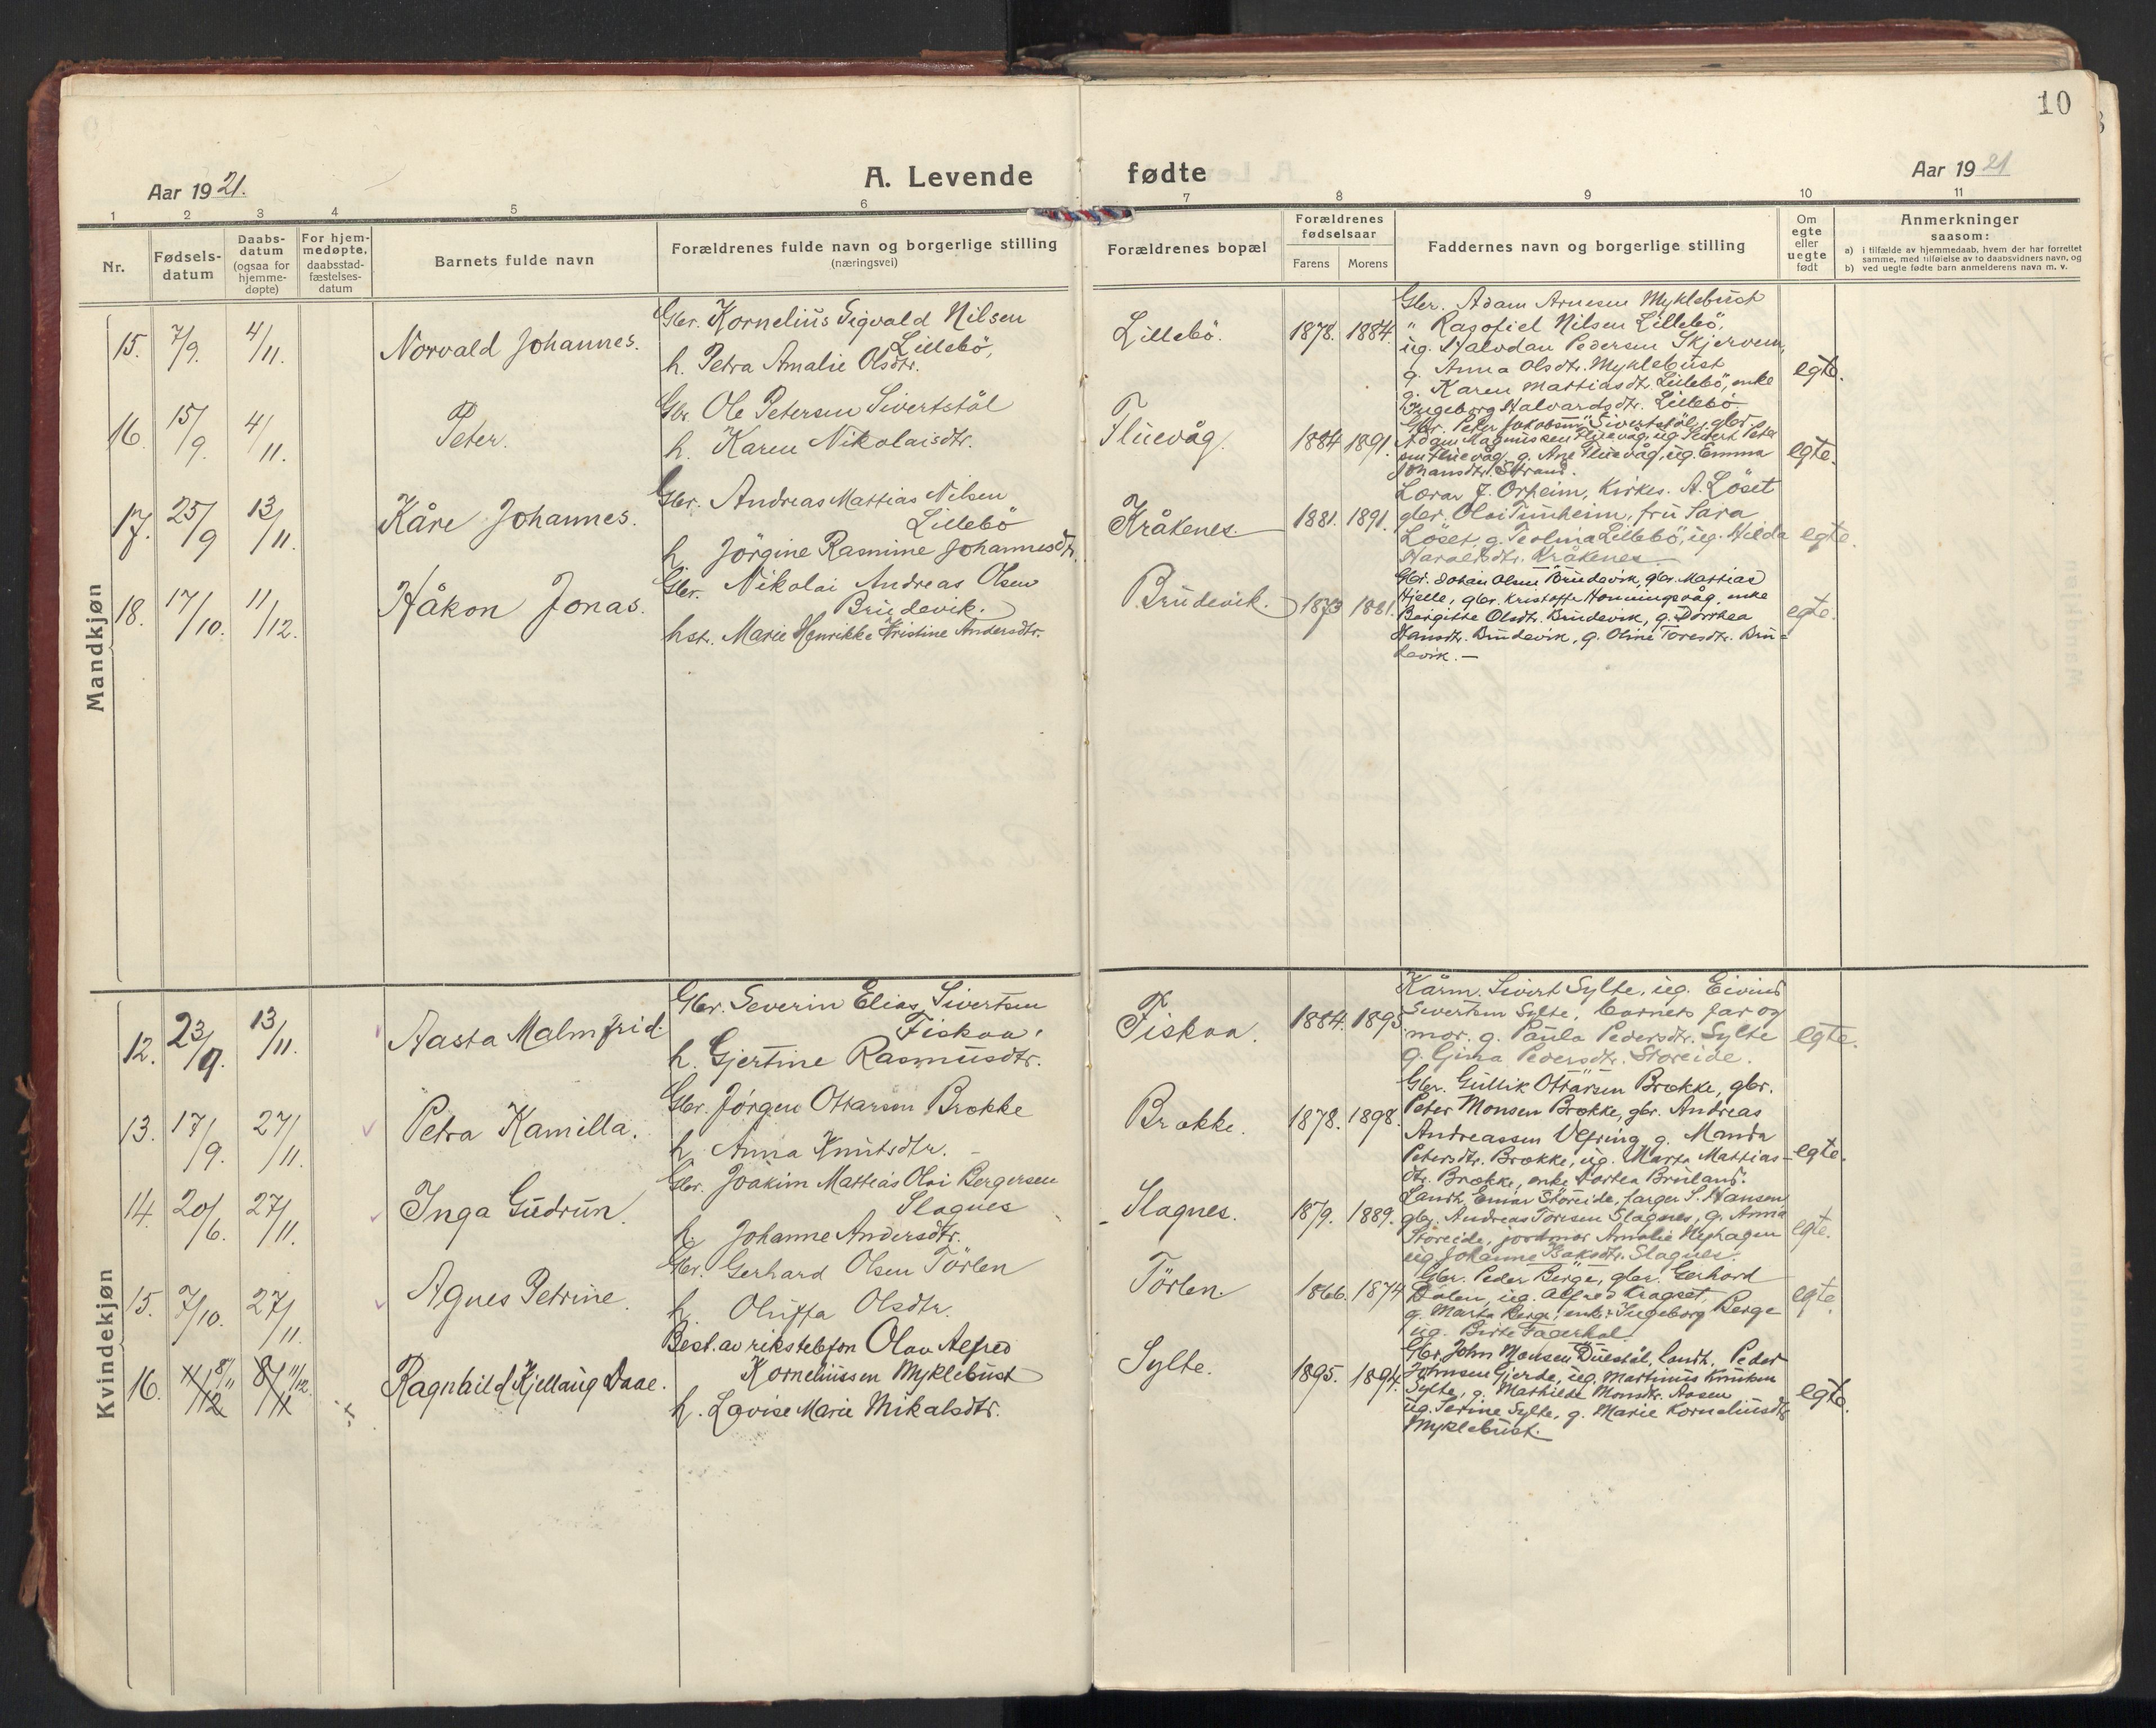 10
Aar 1921.
A. Levende fødte
Aar 1921
1 2 3 4 5 6 7 8 9 10 11
Nr.
Fødsels-
datum
Daabs-
datum
(ogsaa for
hjemme-
døpte)
For hjem-
medøpte,
daabsstad-
fæstelses-
datum
Barnets fulde navn
Forældrenes fulde navn og borgerlige stilling
(næringsvei)
Forældrenes bopæl
Forældrenes
fødselsaar
Farens Morens
Faddernes navn og borgerlige stilling
Om
egte
eller
uegte
født
Anmerkninger
saasom:
a) i tilfælde av hjemmedaab, hvem der har forrettet
samme, med tilføielse av to daabsvidners navn, og
b) ved uegte fødte barn anmelderens navn m. v.
Mandkjøn
15. 7/9. 4/11. Norvald Johannes.
Gbr. Kornelius Sigvald Nilsen
Lillebö,
h. Petra Amalie Olsdtr.
Lillebö. 1878. 1884.
Gbr. Adam Arnesen Myklebust
" Rasofiel Nilsen Lillebö,
ug. Halvdan Pedersen Skjervem,
g. Anna Olsdtr. Myklebust
g. Karen Mattiasdtr. Lillebö, enke
Ingeborg Halvardsdtr. Lillebö.
egte.
16. 15/9. 4/11. Peter.
Gbr. Ole Petersen Sivertstöl
h. Karen Nikolaisdtr.
Fluevåg. 1884 1891.
Gbr. Peter Jakobsen Sivertstöl, gbr.
Adam Magnussen Fluevåg, ug. Sivert Peter
sen Fluevåg, g. Ane Fluevåg, ug. Emma
Johansdtr. Strand.
egte.
17. 25/9 13/11. Kåre Johannes.
Gbr. Andreas Mattias Nilsen
Lillebö
h. Jörgine Rasmine Johannesdtr.
Kråkenes. 1881. 1891.
Lærer J. Orheim, Kirkes. A. Löset
gbr. Olai Tunheim, fru Sara
Löset, g. Teolina Lillebö, ug. Hilda
Haraldsdtr. Kråkenes
egte.
18. 17/10. 11/12. Håkon Jonas.
Gbr. Nikolai Andreas Olsen
Brudevik.
hst. Marie Henrikke Kristine Andersdtr.
Brudevik. 1873 1881.
Gbr. Johan Olsen Brudevik, gbr. Mattias
Hjelle, gbr. Kristoffer Honningsvåg, enke
Bergitte Olsdtr. Brudevik, g. Dorthea
Hansdtr. Brudevik, g. Oline Toresdtr. Bru=
devik. —
egte.
Kvindekjøn
12. 23/9. 13/11. Aasta Malmfrid.
Gbr. Severin Elias Sivertsen
Fiskaa.
h. Gjertine Rasmusdtr.
Fiskaa. 1884. 1895
Kårm. Sivert Sylte, ug. Eivind
Sivertsen Sylte, barnets far og
mor. g. Paula Pedersdtr. Sylte
g. Gina Pedersdtr. Storeide.
egte.
13. 17/9. 27/11. Petra Kamilla.
Gbr. Jörgen Ottarsen Brekke
h. Anna Knutsdtr.
Brekke. 1878. 1898.
Gbr. Gullik Ottarsen Brekke, gbr.
Peter Monsen Brekke, gbr. Andreas
Andreassen Velsring, g. Manda
Petersdtr. Brekke, ug. Marta Mattias-
dtr. Brekke, enke Dortea Bruland.
egte.
14. 20/6. 27/11. Inga Gudrun.
Gbr. Joakim Mattias Olai Bergersen
Slagnes
h. Johanne Andersdtr.
Slagnes. 1879. 1889.
Landh. Einar Storeide, farger S. Hansen
gbr. Andreas Toresen Slagnes, g. Anna
Storeide, jordmor Amalie Myhagen
ug. Johanne Isaksdtr. Slagnes.
egte.
15. 7/10. 27/11. Agnes Petrine.
Gbr. Gerhard Olsen Törlen
h. Oluffa Olsdtr.
Törlen. 1866. 1874
Gbr. Peder Berge, gbr. Gerhard
Dalen, ug. Alfred Kragset,
g. Marta Berge, enke Ingeborg Berge
ug. Birte Fagerhol.
egte.
16. 8/11 11/12. Ragnhild Kjellaug Daae.
Best. av rikstelefon Olav Alfred
Korneliussen Myklebust
h. Lovise Marie Mikalsdtr.
Sylte. 1895. 1894.
Gbr. John Monsen Duestöl, landh. Peder
Johnsen Gjerde, ug. Martinus Knutsen
Sylte, g. Mathilde Monsdtr. Aasen
ug. Serine Sylte, g. Marie Korneliusdtr
Myklebust.
egte.